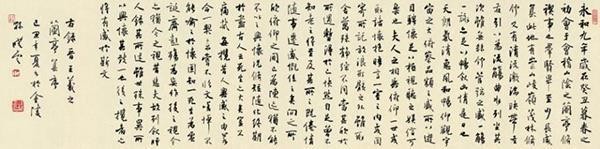 永和九年歲在癸丑暮春之
初會于會稽山陰之蘭亭修
禊事也羣賢畢至少長咸
集此地有崇山峻嶺茂林脩
竹又有清流激湍映帶左
右引以為流觴曲水列坐其
次雖無絲竹管弦之盛一觴
一詠亦足以暢敘幽情是日也
天朗氣清惠風和暢仰觀宇
宙之大俯察品類之盛所以遊
目騁懷足以極視聽之娛信可
樂也夫人之相與俯仰一世或
取諸懷抱悟言一室之內或因
寄所託放浪形骸之外雖趣
舍萬殊靜躁不同當其欣於
所遇暫得於己快然自足不
知老之將至及其所之既倦情
隨事遷感慨係之矣向之所
欣俛仰之間已為陳迹猶不能
不以之興懷況脩短隨化終期
於盡古人云死生亦大矣豈不
痛哉每攬昔人興感之由若
合一契未嘗不臨文嗟悼不
能喻之於懷固知一死生為虛
誕齊彭殤為妄作後之視今
亦猶今之視昔悲夫故列敘時
人錄其所述雖世殊事異所
以興懷其致一也後之攬者
亦將有感於斯文
右錄晉王羲之
蘭亭集序
己丑年夏日於金陵
孫曉雲